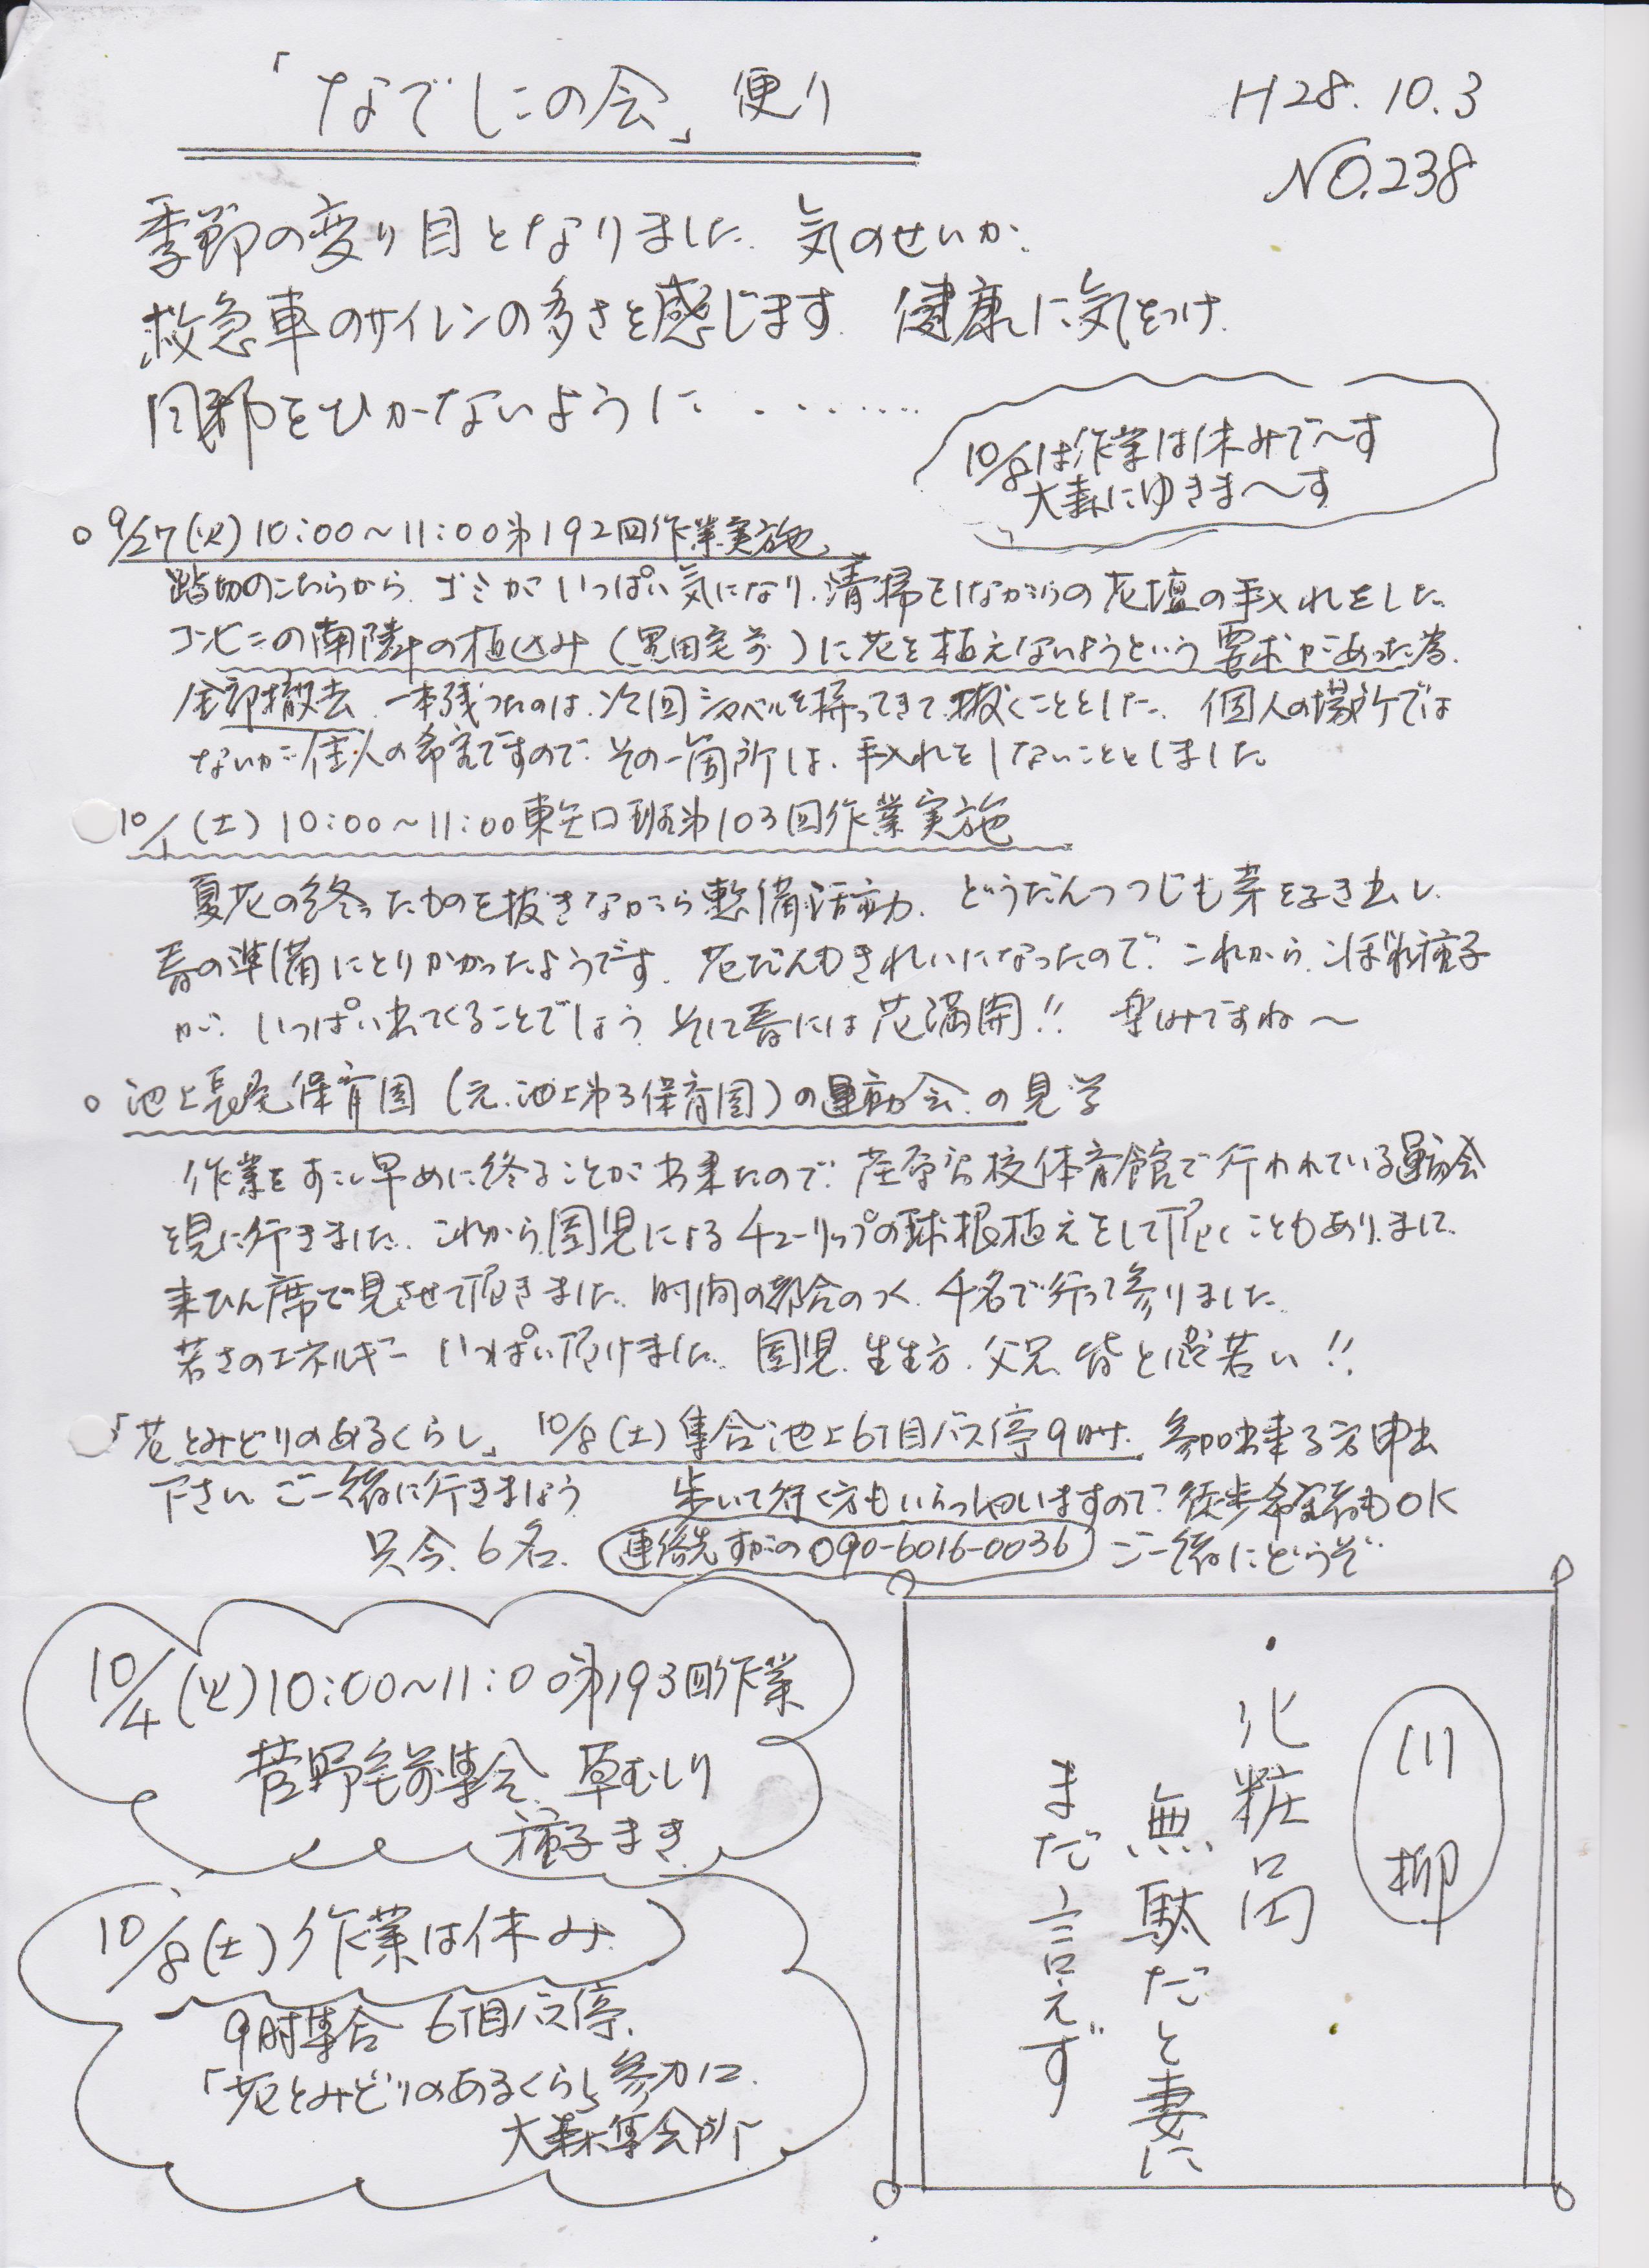 「なでしこの会」便り
H28.10.3
NO.238
季節の変り目となりました. 気のせいか.
救急車のサイレンの多さを感じます. 健康に気をつけ.
風邪をひかないように ・・・・・・・
10/8は作業は休みで〜す
大森にゆきま〜す
○ 9/27(火)10:00〜11:00第192回作業実施.
踏切のこちらから. ゴミがいっぱい気になり.清掃をしながらの花壇の手入れをした.
コンビニの南隣の植込み(黒田宅前)に花を植えないようという要求があった為.
全部撤去. 一本残ったのは.次回シャベルを持ってきて.抜くこととした. 個人の場所では
ないが個人の希望ですので.その一箇所は.手入れをしないこととしました.
10/1(土)10:00〜11:00東矢口班第103回作業実施
夏花の終ったものを抜きながら整備活動. どうだんつつじも芽を吹き出し.
春の準備にとりかかったようです. 花だんもきれいになったので.これから.こぼれ種子
が.いっぱい出てくることでしょう そして春には花満開!! 楽しみですね〜
○ 池上長尾保育園(元.池上第3保育園)の運動会.の見学
作業をすこし早めに終ることが出来たので.荏原学校体育館で行われている運動会
を見に行きました. これから.園児によるチューリップの球根植えをして頂くこともありまして.
来ひん席で見させて頂きました. 時間の都合のつく.4名で行って参りました.
若さのエネルギー いっぱい頂けました. 園児.先生方.父兄.皆と〜超若い!!
「花とみどりのあるくらし」 10/8(土)集合池上6丁目バス停9時. 参加出来る方申出
下さい ご一緒に行きましょう 歩いて行く方もいらっしゃいますので.徒歩希望者もOK
只今.6名. 連絡先すがの090-6016-0036 ご一緒にどうぞ
10/4(火)10:00〜11:00第193回作業
菅野宅前集合.草むしり
種子まき
10/8(土)作業は休み.
9時集合 6丁目バス停.
「花とみどりのあるくらし」参加に.
大森集会所へ
川柳
・化粧品
無駄だと妻に
まだ言えず